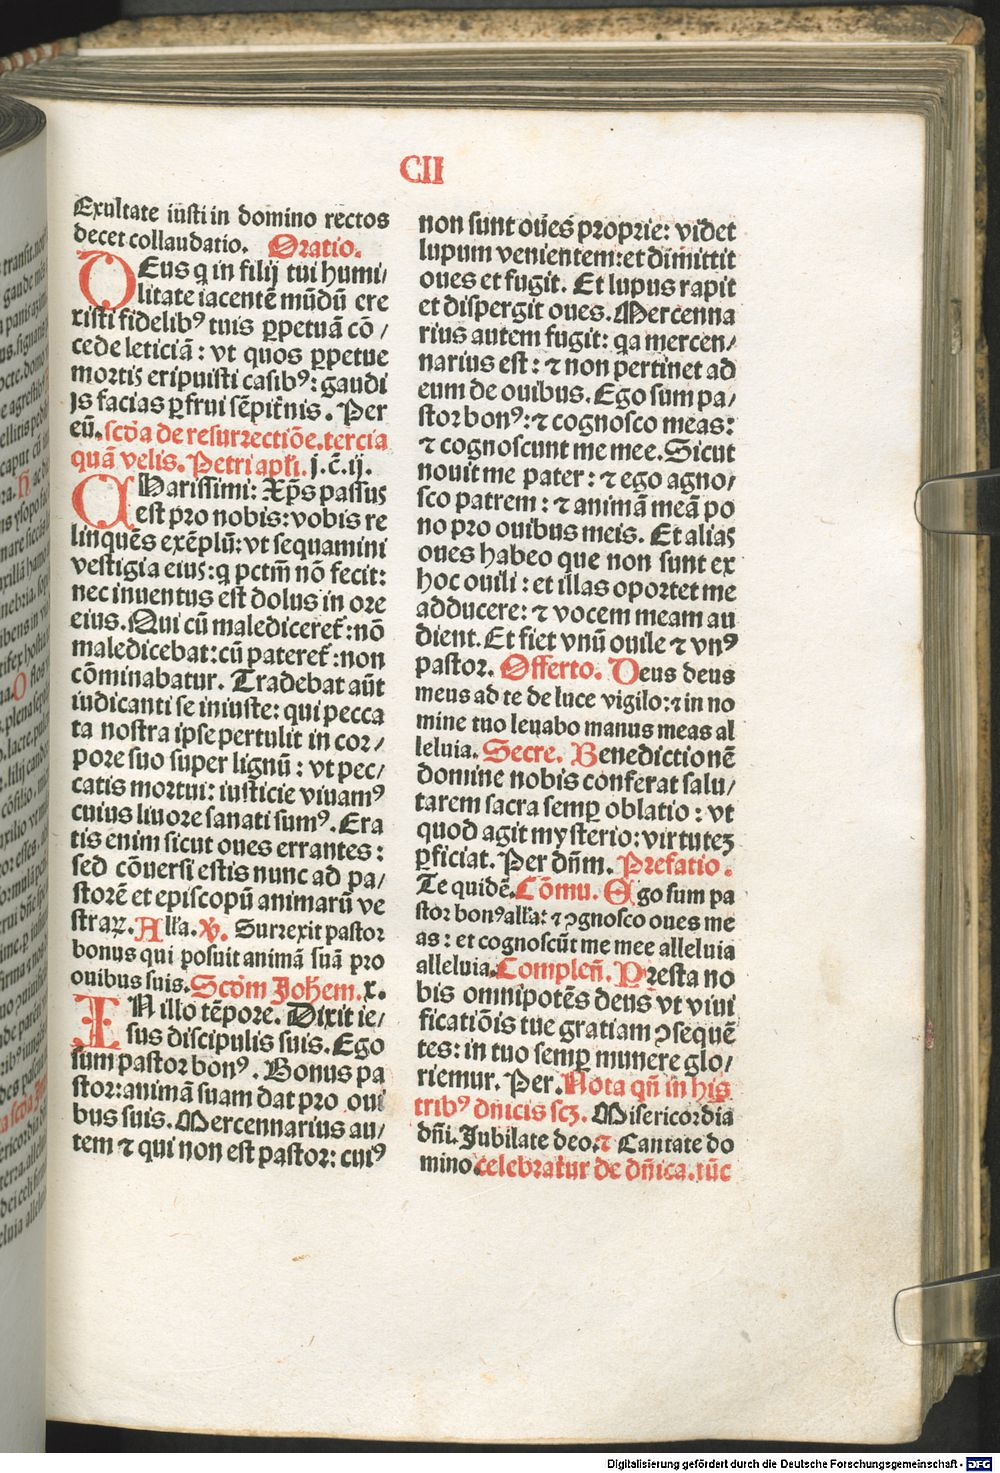 CII
Exultate iusti in domino rectos
decet collaudatio. Oratio.
DEus q in filij tui humi/
litate iacentē mūdū ere
xisti fidelibꝰ tuis ꝑpetuā cō/
cede leticiā: vt quos ꝑpetue
mortis eripuisti casibꝰ: gaudi
js facias ꝑfrui sēpit̄nis. Per
eū. scd̄a de resurrectiōe. tercia
quā velis. Petri apl̄i. j. c̄. ij.
CHarissimi: Xp̄s passus
est pro nobis: vobis re
linquēs exēplū: vt sequamini
vestigia eius: q pctm̄ nō fecit:
nec inuentus est dolus in ore
eius. Qui cū malediceret̄: nō
maledicebat: cū pateret̄: non
cōminabatur. Tradebat aūt
iudicanti se iniuste: qui pecca
ta nostra ipse pertulit in cor/
pore suo super lignū: vt pec/
catis mortui: iusticie viuamꝰ
cuius liuore sanati sumꝰ. Era
tis enim sicut oues errantes:
sed cōuersi estis nunc ad pa/
storē et episcopū animarū ve
straꝝ. All̄a. ꝟ. Surrexit pastor
bonus qui posuit animā suā pro
ouibus suis. Scd̄m Joh̄em. x.
IN illo tēpore. Dixit ie/
sus discipulis suis. Ego
sum pastor bonꝰ. Bonus pa
stor: animā suam dat pro oui
bus suis. Mercennarius au/
tem ⁊ qui non est pastor: cuiꝰ
non sunt oūes proprie: videt
lupum venientem: et dimittit
oues et fugit. Et lupus rapit
et dispergit oues. Mercenna
rius autem fugit: qa mercen/
narius est: ⁊ non pertinet ad
eum de ouibus. Ego sum pa/
stor bonꝰ: ⁊ cognosco meas:
⁊ cognoscunt me mee. Sicut
nouit me pater: ⁊ ego agno/
sco patrem: ⁊ animā meā po
no pro ouibus meis. Et alias
oues habeo que non sunt ex
hoc ouili: et illas oportet me
adducere: ⁊ vocem meam au
dient. Et fiet vnū ouile ⁊ vnꝰ
pastor. Offerto. Deus deus
meus ad te de luce vigilo: ⁊ in no
mine tuo leuabo manus meas al
leluia. Secre. Benedictionē
domine nobis conferat salu/
tarem sacra semꝑ oblatio: vt
quod agit mysterio: virtuteꝫ
ꝑficiat. Per dn̄m. Prefatio.
Te quidē. Cōmu. Ego sum pa
stor bonꝰ all̄a: ⁊ ꝯgnosco oues me
as: et cognoscūt me mee alleluia
alleluia. Complen̄. Presta no
bis omnipotēs deus vt viui
ficatiōis tue gratiam ꝯsequē
tes: in tuo semꝑ munere glo/
riemur. Per. Nota qn̄ in his
tribꝰ dn̄icis scꝫ. Misericordia
dn̄i. Jubilate deo. ⁊ Cantate do
mino. celebratur de dn̄ica. tūc
Digitalisierung gefördert durch die Deutsche Forschungsgemeinschaft - DFG